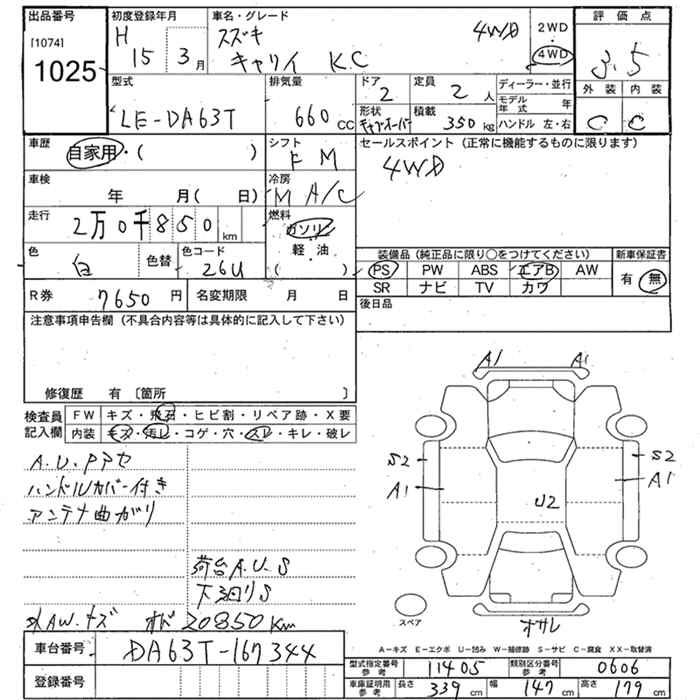 出品番号 初度登録年月 車名・グレード 評価点
[1074] H 15 3月 スズキ 4WD 2WD・4WD 3.5
1025 キャリイ KC 外装 内装
型式 排気量 ドア 定員 ディーラー・並行
LE-DA63T 660 cc 2 2人 モデル年式 年 C C
形状 キャブオーバー 積載 350 kg ハンドル 左・右
車歴 自家用・( ) シフト F M セールスポイント (正常に機能するものに限ります)
車検 年 月( 日) 冷房 M A/C 4WD
走行 2万0千850 km 燃料 ガソリン・軽油 ( )
色 白 色替 色コード 26U
装備品 (純正品に限り○をつけてください) 新車保証書
PS PW ABS エアB AW 有・無
SR ナビ TV カワ
R券 7650円 名変期限 月 日 後日品
注意事項申告欄 (不具合内容等は具体的に記入して下さい)
修復歴 有 〔箇所 〕
検査員記入欄 FW キズ・飛石・ヒビ割・リペア跡・X要
内装 キズ・汚レ・コゲ・穴・スレ・キレ・破レ
A.U.PPセ
ハンドルカバー付き
アンテナ曲がり
荷台A.U.S
下廻りS
AW.キズ オド 20850Km
A1 A1
S2 S2
A1 A1
U2
スペア オサレ
A-キズ E-エクボ U-凹み W-補修跡 S-サビ C-腐食 XX-取替済
車台番号 DA63T-167344
登録番号
型式指定番号 参考 11405 類別区分番号 参考 0606
車庫証明用 参考 長さ 339 cm 幅 147 cm 高さ 179 cm